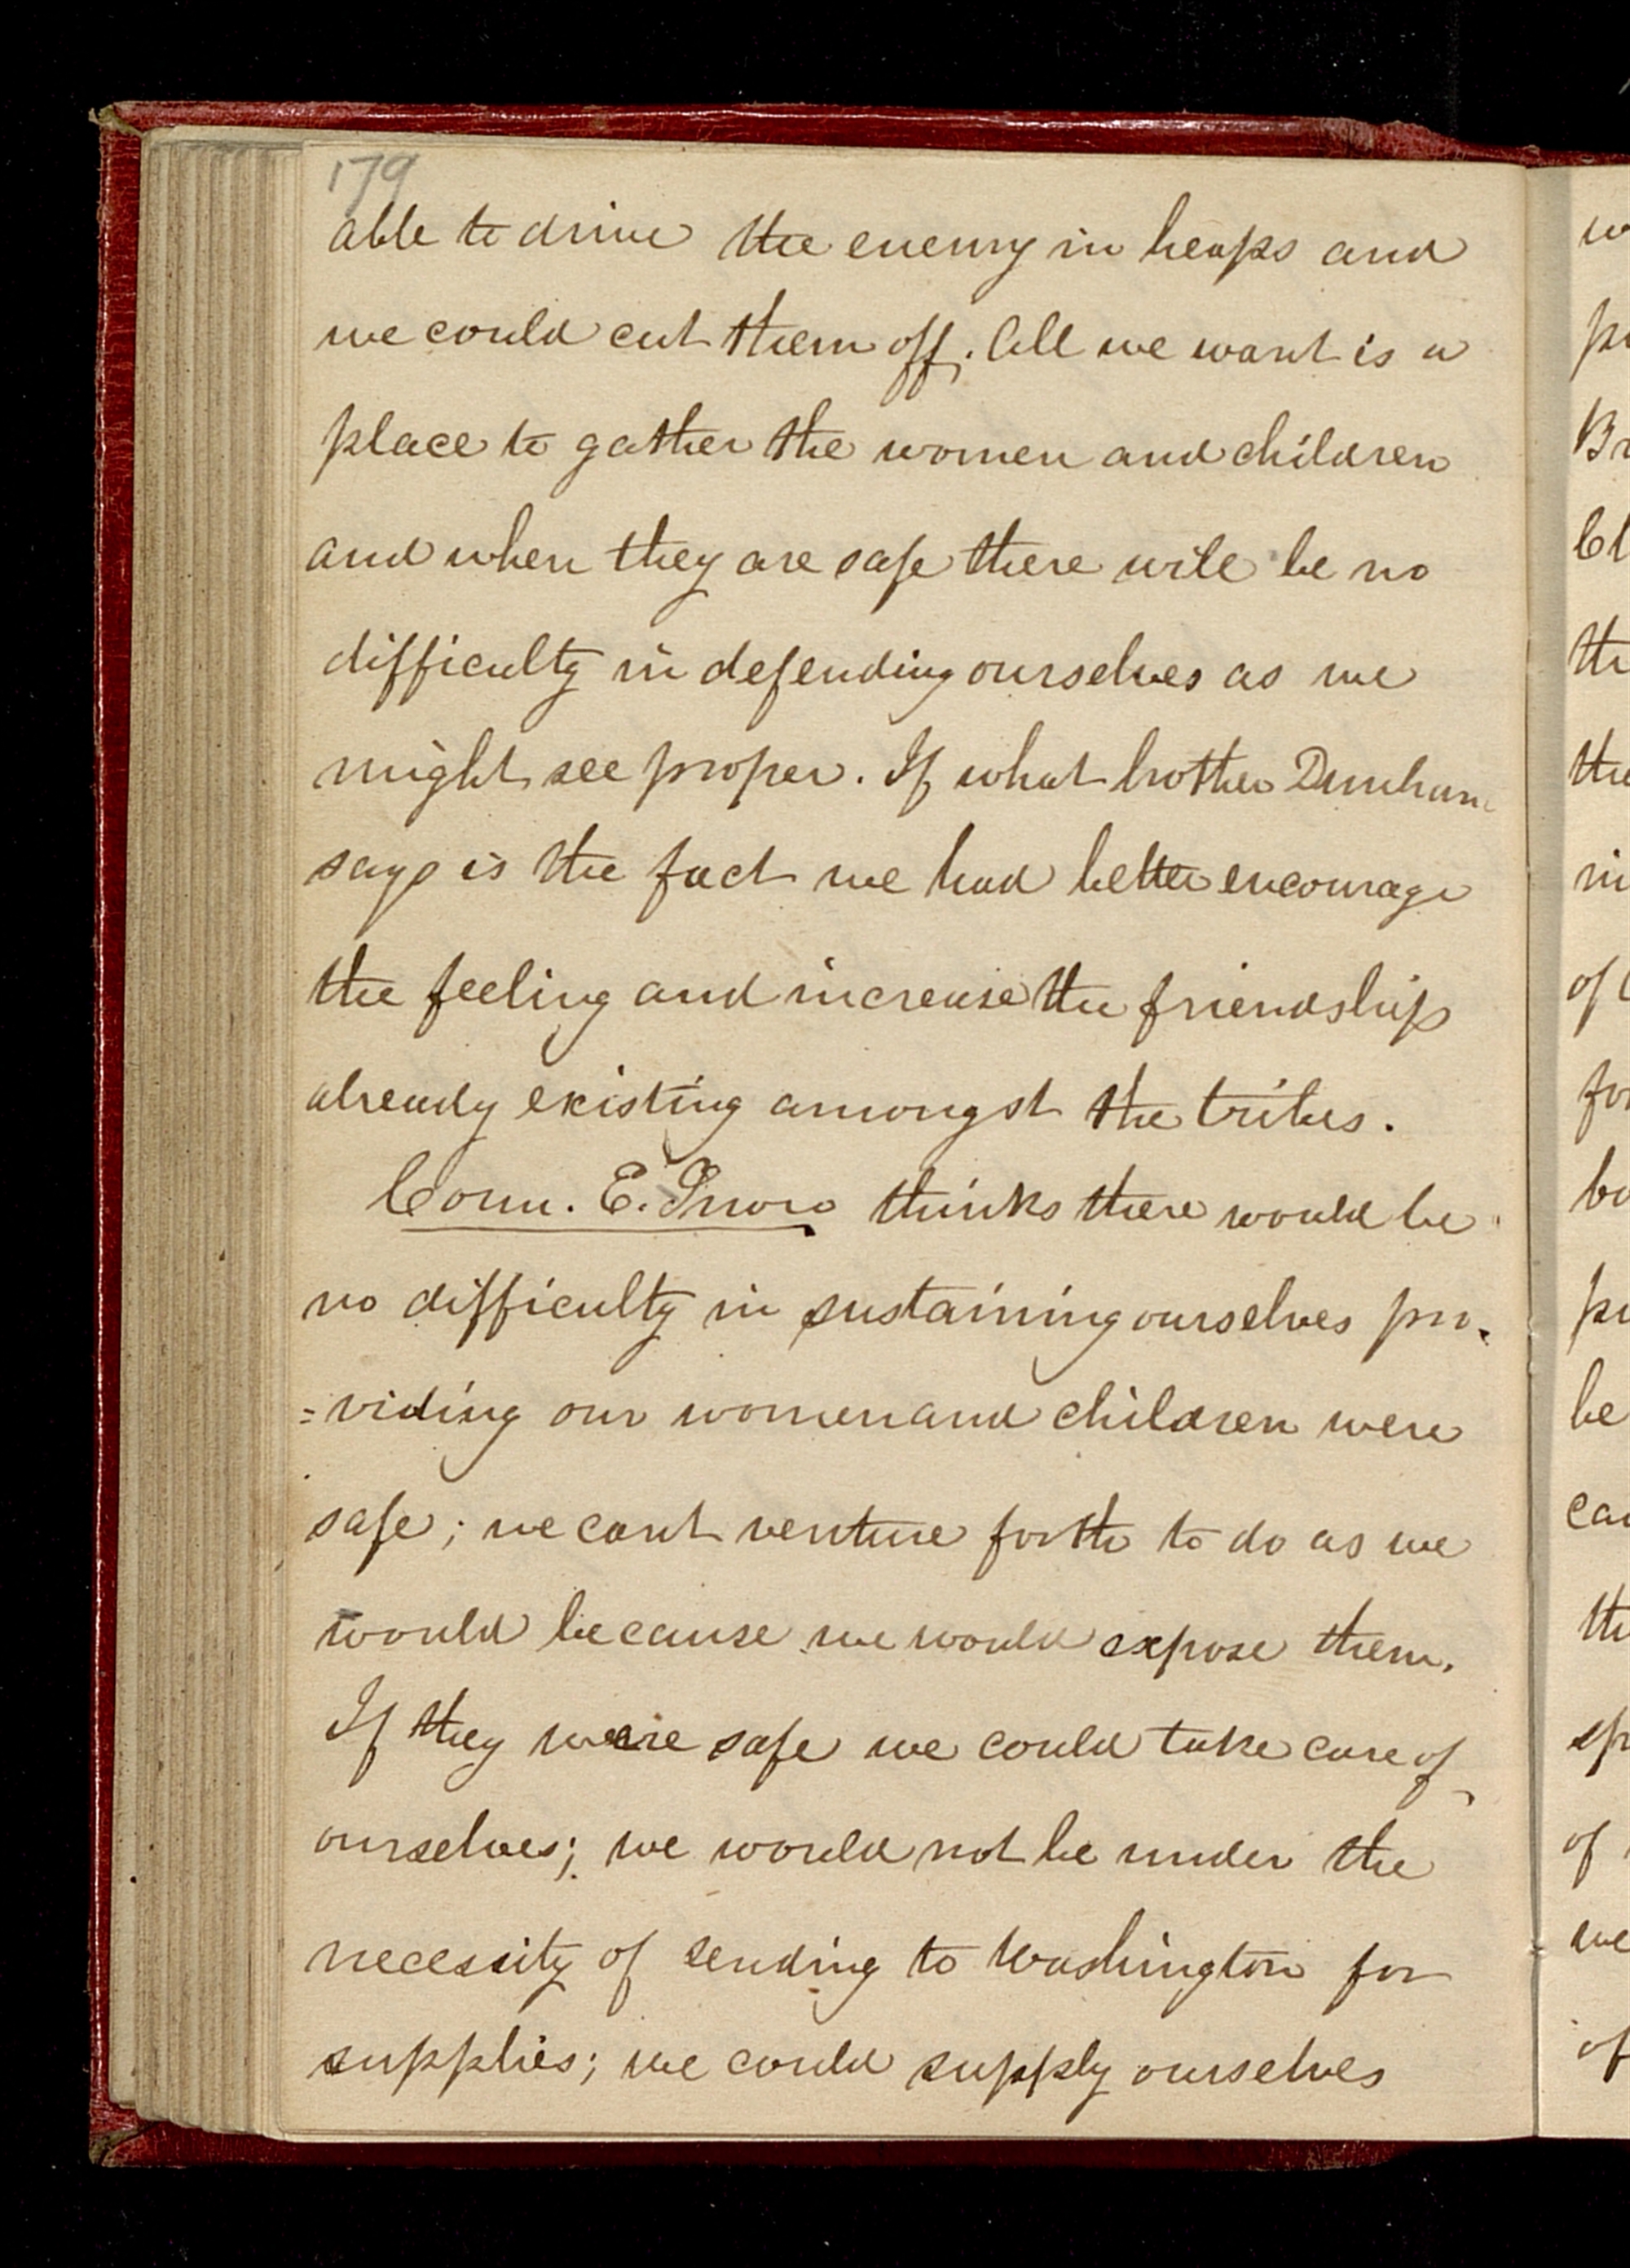 179
able to drive the enemy in heaps and
we could cut them off. All we want is a
place to gather the women and children
and when they are safe there will be no
difficulty in defending ourselves as we
might see proper. If what brother Dunham
says is the fact we had better encourage
the feeling and increase the friendship
already existing amongst the tribes.
Coun. E. Snow thinks there would be
no difficulty in sustaining ourselves pro-
=viding our women and children were
safe; we cant venture forth to do as we
would because we would expose them.
If they were safe we could take care of
ourselves; we would not be under the
necessity of sending to Washington for
supplies; we could supply ourselves